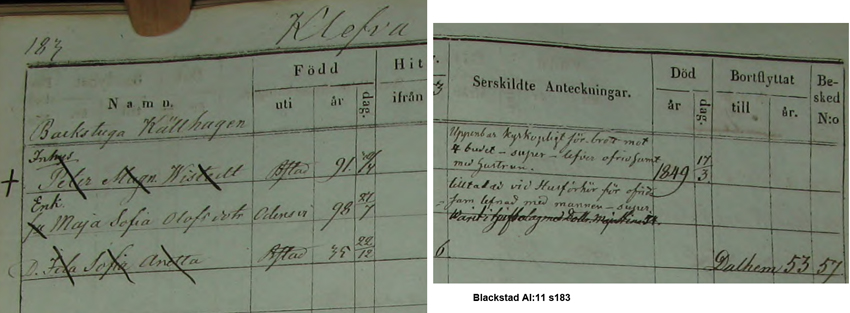 183
Klefva
Namn.
Född
uti
år
dag.
Hit
ifrån
Backstuga Källhagen
Inhys
Peter Magn. Wistedt Bstad 91. 14
Enk.
Maja Sofia Olofs dotr Odensvi 98 27/7
D. Sofia Anetta Bstad 35 22/12
Serskildte Anteckningar.
Död
år
dag.
Bortflyttat
till
år.
Besked
N:o
3
Uppenbar kyrkopligt för brott mot
4 budet - super - lefver ofridsamt
med hustrun. 1849 17/3
tilltalad vid Husförhör för ofrid-
sam lefnad med mannen - super.
6 Dalhem 53 57
Blackstad AI:11 s183